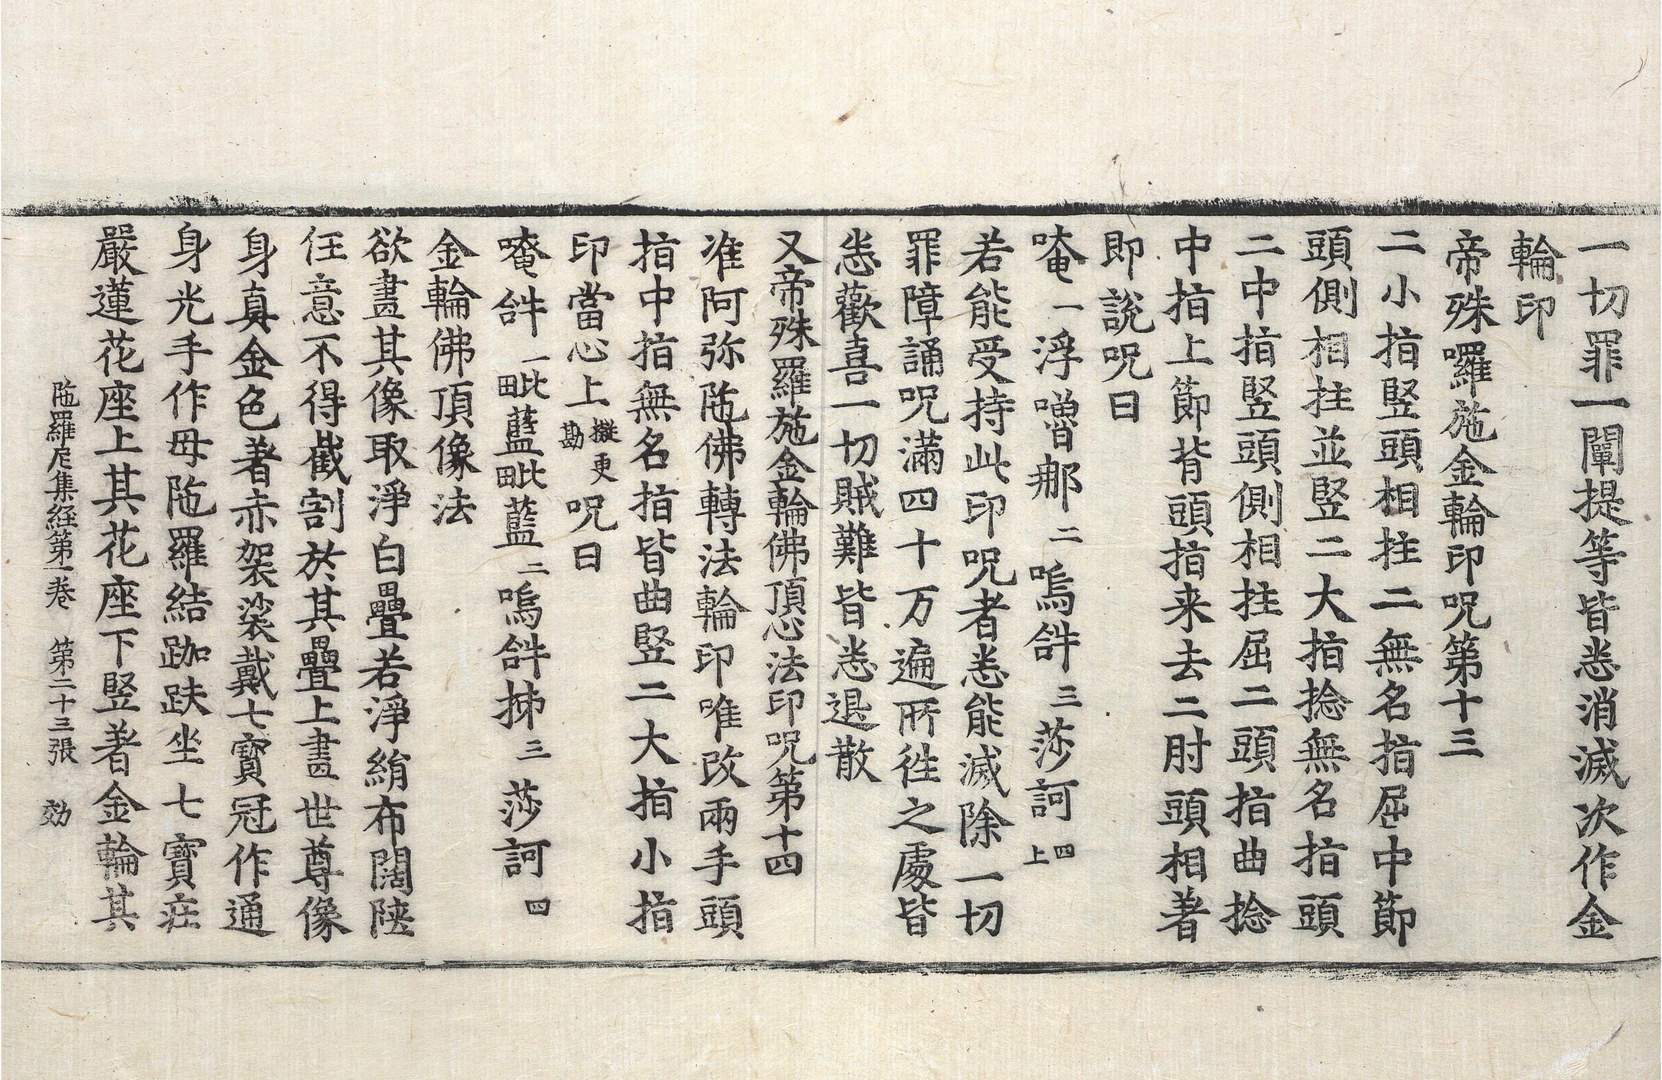 一切罪一闡提等皆悉消滅次作金
輪印
帝殊囉施金輪印呪第十三
二小指竪頭相拄二無名指屈中節
頭側相拄並竪二大指捻無名指頭
二中指竪頭側相拄屈二頭指曲捻
中指上節背頭指来去二肘頭相著
即說呪曰
唵一浮嚕那二嗚𤙖三莎訶四上
若能受持此印呪者悉能滅除一切
罪障誦呪滿四十万遍所往之處皆
悉歡喜一切賊難皆悉退散
又帝殊羅施金輪佛頂心法印呪第十四
准阿弥陁佛轉法輪印唯改兩手頭
指中指無名指皆曲竪二大指小指
印當心上擬更勘呪曰
唵𤙖一毗藍毗藍二嗚𤙖抪三莎訶四
金輪佛頂像法
欲畫其像取淨白疊若淨絹布闊陜
任意不得截割於其疊上畫世尊像
身真金色著赤袈裟戴七寶冠作通
身光手作母陁羅結跏趺坐七寶莊
嚴蓮花座上其花座下竪著金輪其
陁羅尼集經第一卷 第二十三張 効